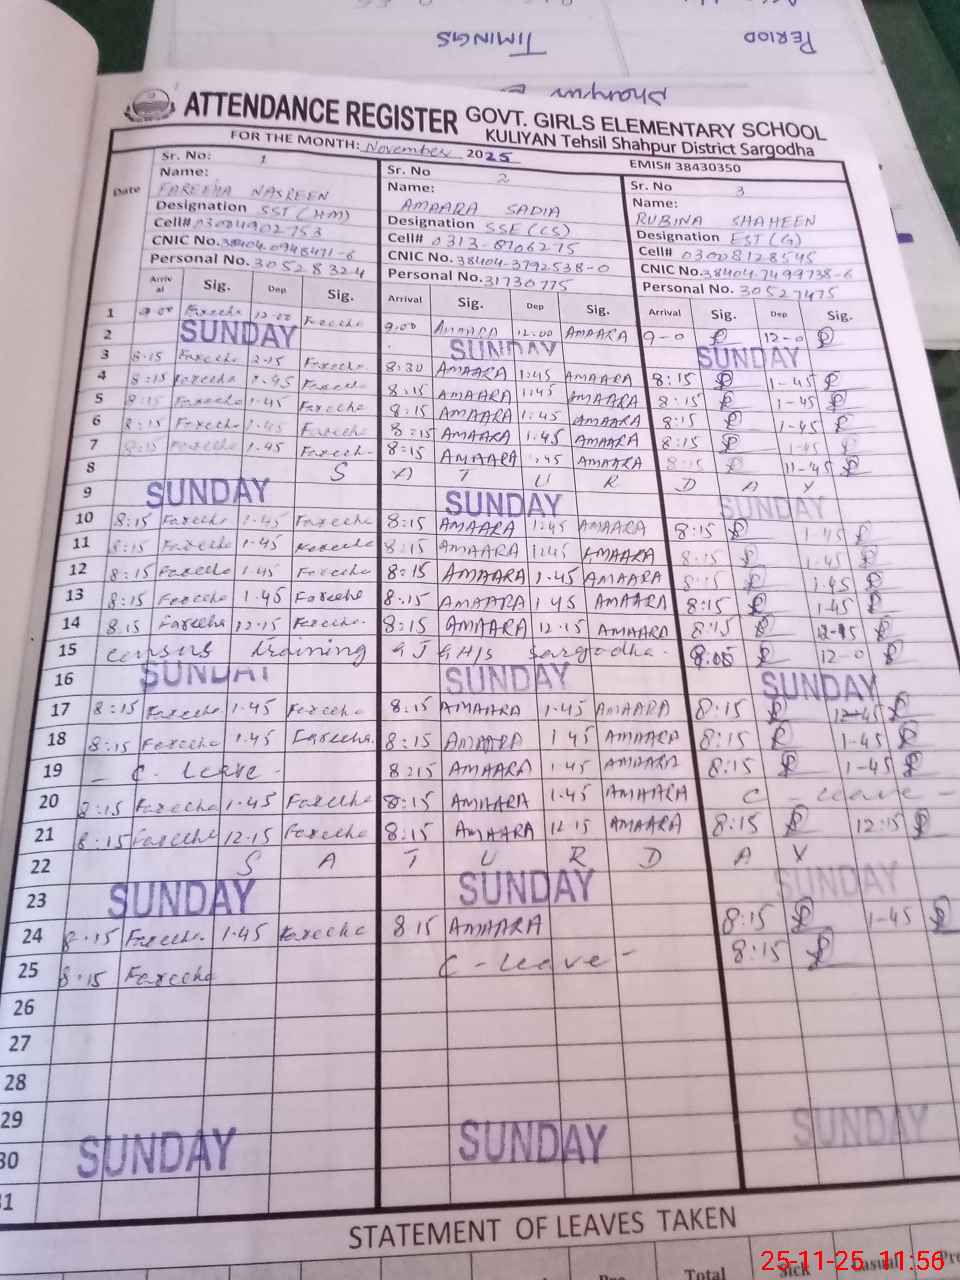 PERIOD
TIMINGS
ATTENDANCE REGISTER GOVT. GIRLS ELEMENTARY SCHOOL
KULIYAN Tehsil Shahpur District Sargodha
FOR THE MONTH: November 2025
EMIS# 38430350
Date
Sr. No: 1
Name:
FAREEHA NASREEN
Designation SST (HM)
Cell# 03004902753
CNIC No. 38404-0948471-6
Personal No. 30528324
Sr. No 2
Name:
AMAARA SADIA
Designation SSE (CS)
Cell# 0313-8706275
CNIC No. 38404-3792538-0
Personal No. 31730775
Sr. No 3
Name:
RUBINA SHAHEEN
Designation EST (G)
Cell# 03008128545
CNIC No. 38404-7499738-6
Personal No. 30527475
Arrival Sig. Dep Sig. Arrival Sig. Dep Sig. Arrival Sig. Dep Sig.
1 9.00 Fareeha 12.00 Fareeha 9.00 AMAARA 12.00 AMAARA 9-0 12-0
2 SUNDAY SUNDAY SUNDAY
3 8.15 Fareeha 2.15 Fareeha 8:30 AMAARA 1:45 AMAARA 8:15 1-45
4 8:15 Fareeha 1.45 Fareeha 8:15 AMAARA 1:45 AMAARA 8:15 1-45
5 8:15 Fareeha 1.45 Fareeha 8:15 AMAARA 1:45 AMAARA 8:15 1-45
6 8:15 Fareeha 1.45 Fareeha 8:15 AMAARA 1.45 AMAARA 8:15 1-45
7 8:15 Fareeha 1.45 Fareeha 8:15 AMAARA 1:45 AMAARA 8:15 11-45
8 S A T U R D A Y
9 SUNDAY SUNDAY SUNDAY
10 8:15 Fareeha 1.45 Fareeha 8:15 AMAARA 1:45 AMAARA 8:15 1-45
11 8:15 Fareeha 1.45 Fareeha 8:15 AMAARA 1:45 AMAARA 8:15 1.45
12 8:15 Fareeha 1.45 Fareeha 8:15 AMAARA 1.45 AMAARA 8:15 1.45
13 8:15 Fareeha 1.45 Fareeha 8:15 AMAARA 1.45 AMAARA 8:15 1-45
14 8.15 Fareeha 12.15 Fareeha 8:15 AMAARA 12.15 AMAARA 8:15 12-15
15 census training GHS Sargodha. 8.05 12-0
16 SUNDAY SUNDAY SUNDAY
17 8:15 Fareeha 1.45 Fareeha 8:15 AMAARA 1.45 AMAARA 8:15 12-45
18 8:15 Fareeha 1.45 Fareeha 8:15 AMAARA 1.45 AMAARA 8:15 1-45
19 - C. leave - 8:15 AMAARA 1.45 AMAARA 8:15 1-45
20 8:15 Fareeha 1.45 Fareeha 8:15 AMAARA 1.45 AMAARA C - leave -
21 8:15 Fareeha 12.15 Fareeha 8:15 AMAARA 12.15 AMAARA 8:15 12:15
22 S A T U R D A Y
23 SUNDAY SUNDAY SUNDAY
24 8.15 Fareeha 1.45 Fareeha 8 15 AMAARA 8:15 1-45
25 8.15 Fareeha C - leave - 8:15
26
27
28
29
30 SUNDAY SUNDAY SUNDAY
31
STATEMENT OF LEAVES TAKEN
Total Sick Casual
25-11-25 11:56